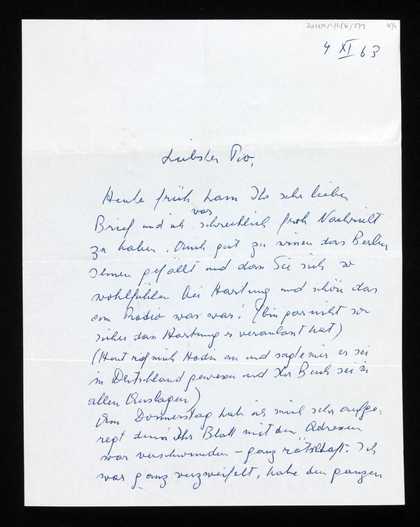 4 XI 63
Liebster Pio,
Heute früh kam Ihr sehr lieber
Brief und ich war schrecklich froh Nachricht
zu haben. Auch gut zu wissen dass Berlin
Ihnen gefällt und dass Sie sich so
wohlfühlen bei Hartung und schön das
am Radio was war! (bin gar nicht so
sicher dass Hartung es veranlasst hat)
(Heut rief mich Hodin an und sagte mir er sei
in Deutschland gewesen und Ihr Buch sei in
allen Auslagen)
Am Donnerstag hab ich mich sehr aufge-
regt denn Ihr Blatt mit den Adressen
war verschwunden – ganz rätselhaft. Ich
war ganz verzweifelt, habe den ganzen